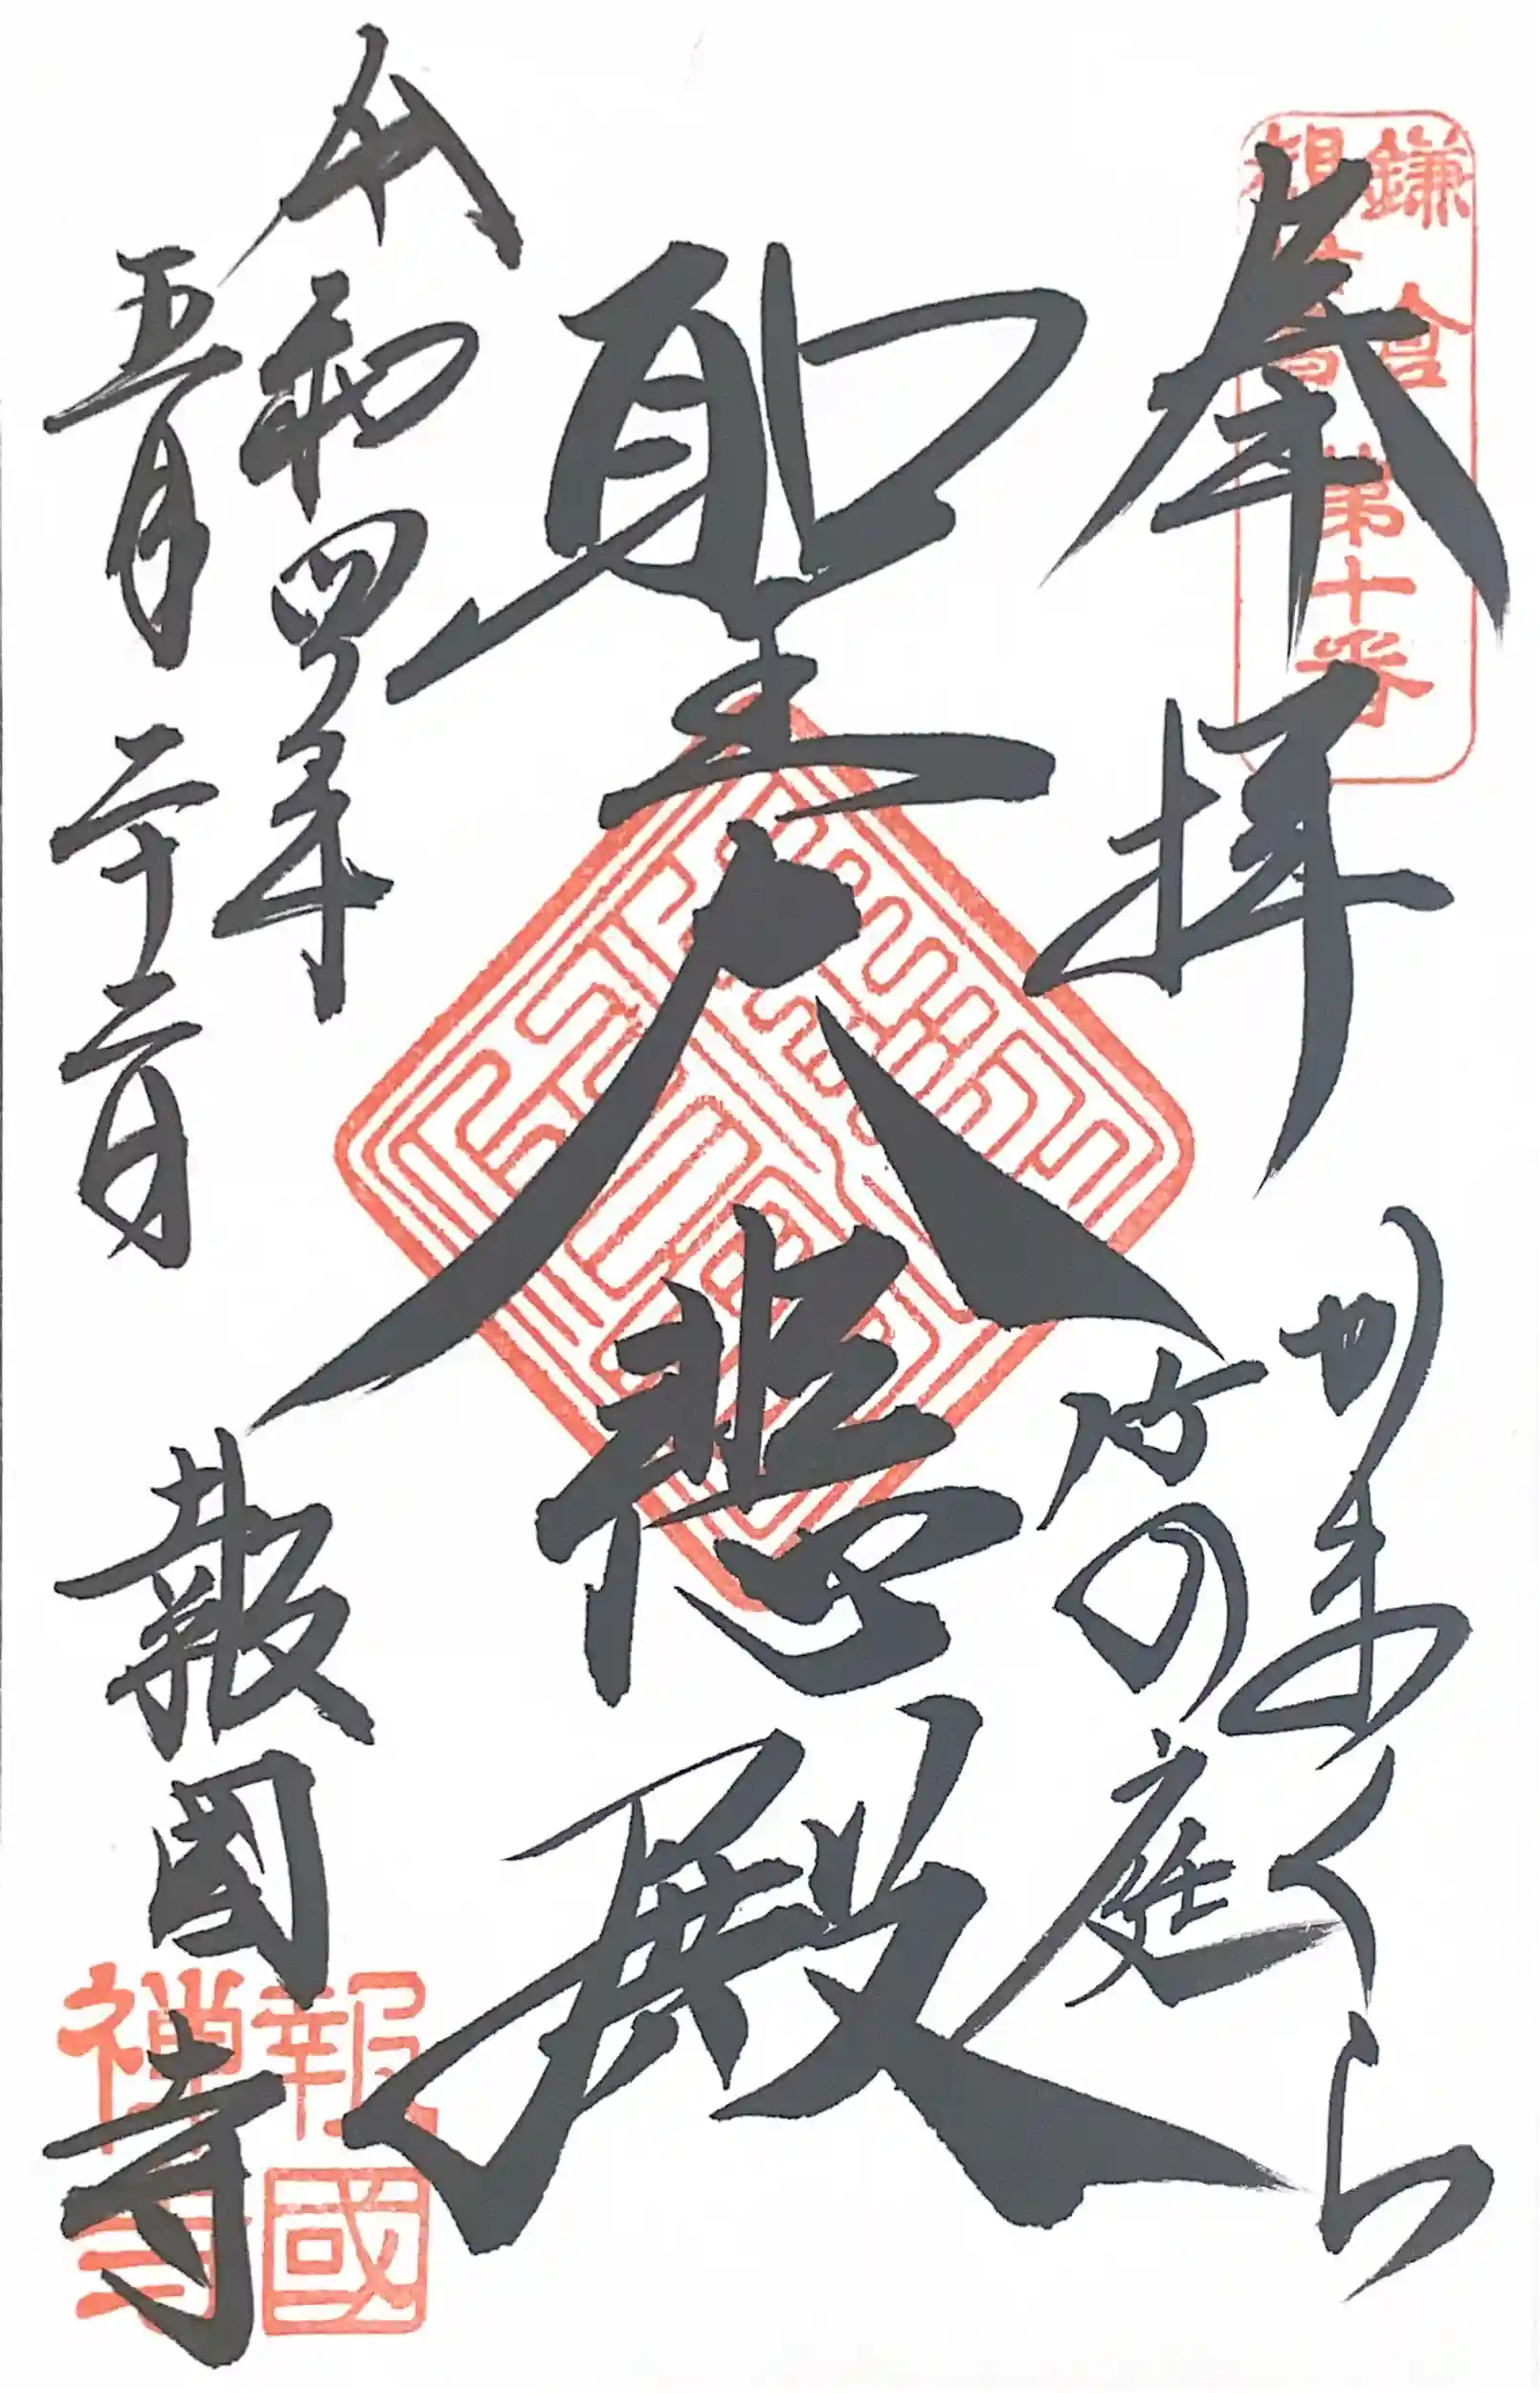 奉拝
鎌倉
第十番
かまくら
竹の庭
聖大悲殿
令和四年
五月二十二日
報國寺
報國
禅寺